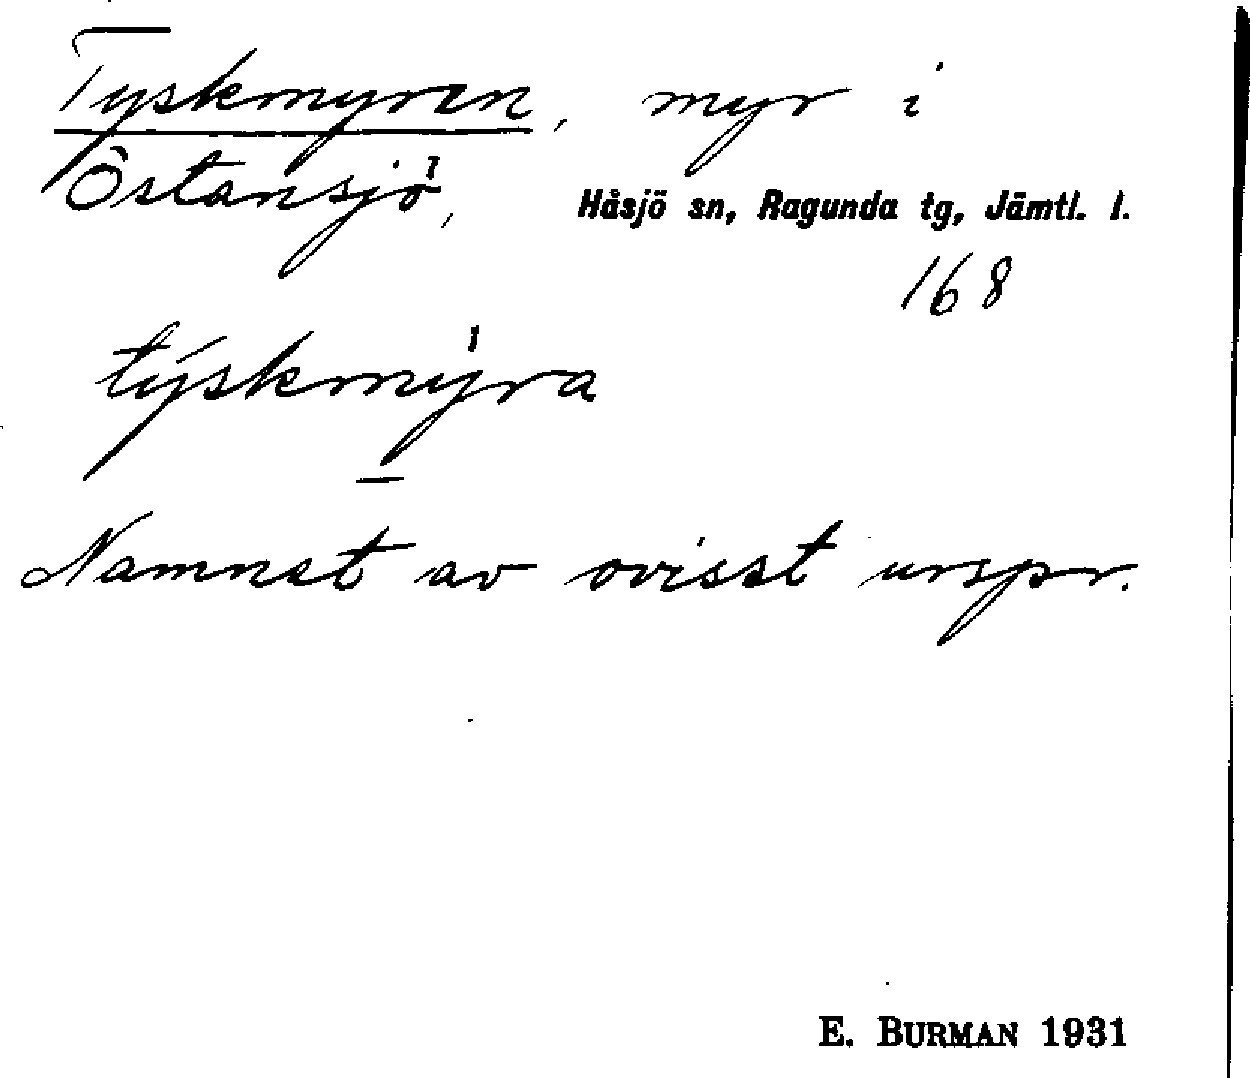 Tyskmyren, myr i
Östansjö, Håsjö sn, Ragunda tg, Jämtl. l.
168
týskmỳra
Namnet av ovisst urspr.
E. BURMAN 1931